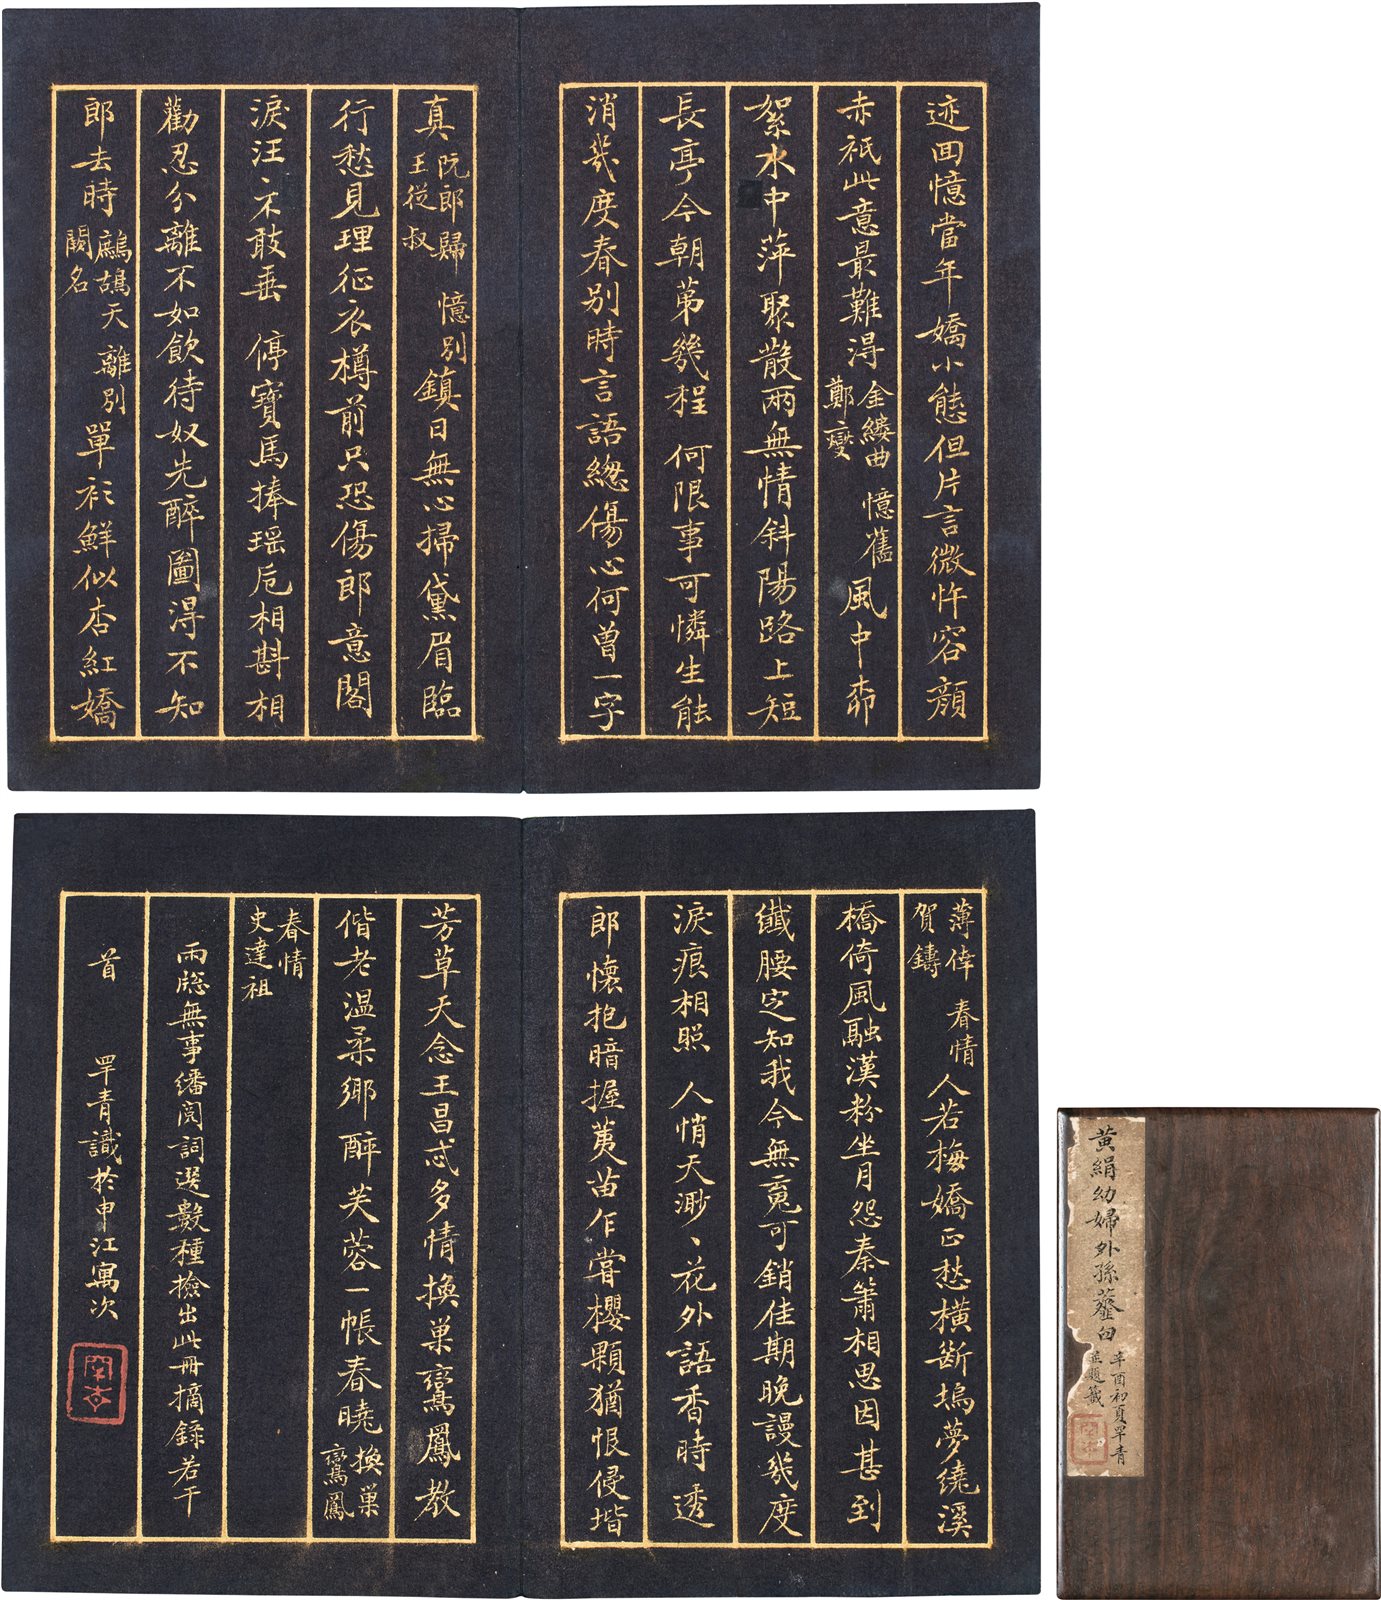 迹回憶當年嬌小態但片言微忤容顏
赤祇此意最難得 金縷曲 憶舊 鄭燮 風中
絮水中萍聚散兩無情斜陽路上短
長亭今朝第幾程 何限事可憐生能
消幾度春別時言語總傷心何曾一字
真 阮郎歸 憶別 王從叔 鎮日無心掃黛眉臨
行愁見理征衣樽前只恐傷郎意閣
淚汪〻不敢垂 停寶馬捧瑤卮相斟相
勸忍分離不如飲待奴先醉圖得不知
郎去時 鷓鴣天 離別 闕名 單衫鮮似杏紅嬌
薄倖 春情 賀鑄 人若梅嬌正愁橫斷塢夢繞溪
橋倚風融漢粉坐月怨秦簫相思因甚到
纖腰定知我今無䰟可銷佳期晚謾幾度
淚痕相照 人悄天渺〻花外語香時透
郎懷抱暗握荑苗乍嘗櫻顆猶恨侵堦
芳草天念王昌忒多情換巢鸞鳳教
偕老溫柔鄉醉芙蓉一帳春曉 換巢鸞鳳
春情 史達祖
雨牎無事繙閱詞選數種撿出此冊摘錄若干
首 罕青識於申江寓次
黃絹幼婦外孫虀臼 辛酉初夏罕青
並題籤